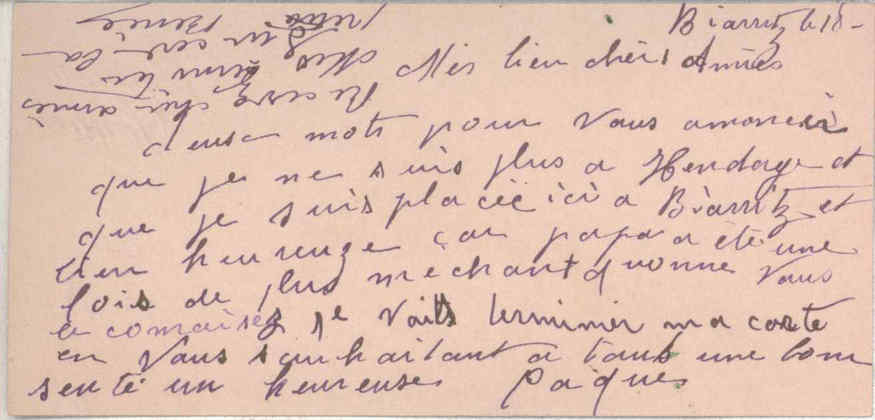 Biarritz le 18-
Mes bien chères Amies
deux mots pour vous anoncèr
que je ne suis plus a Hendaye et
que je suis placéé ici a Biarritz et
bien heureuze çar papa a été une
fois de plus méchant quonne Vous
le conaisez je Vaits terminer ma carte
en Vous souhaitant a tous une bonn
senté un heureuses Paques
Recevez chèr amies
les
un